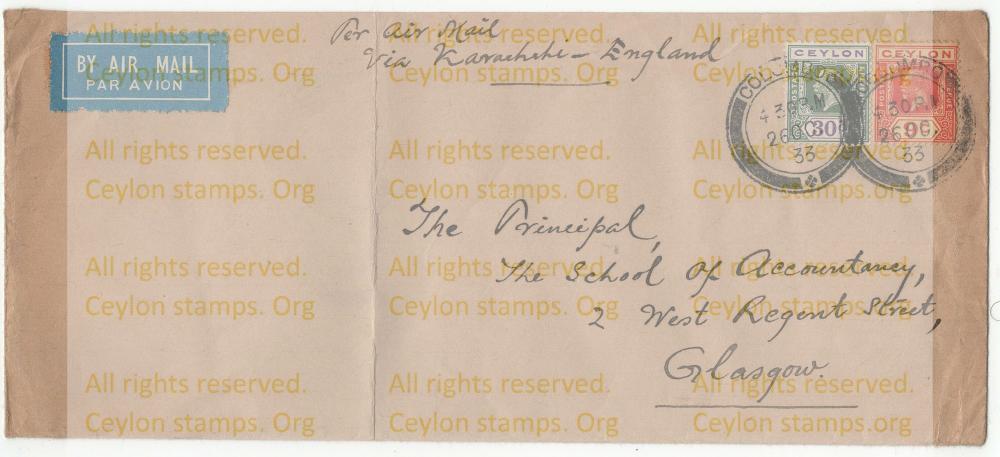 Per Air Mail
Via Karachchi - England
BY AIR MAIL
PAR AVION
CEYLON
CEYLON
POSTAGE
30
9
COLOMBO
4 30 P.M
26 OC
33
4 30 P.M
26 OC
33
The Principal,
The School of Accountancy,
2 West Regent Street,
Glasgow.
All rights reserved. All rights reserved. All rights reserved.
Ceylon stamps. Org Ceylon stamps. Org Ceylon stamps. Org
All rights reserved. All rights reserved. All rights reserved.
Ceylon stamps. Org Ceylon stamps. Org Ceylon stamps. Org
All rights reserved. All rights reserved. All rights reserved.
Ceylon stamps. Org Ceylon stamps. Org Ceylon stamps. Org
All rights reserved. All rights reserved. All rights reserved.
Ceylon stamps. Org Ceylon stamps. Org Ceylon stamps.org